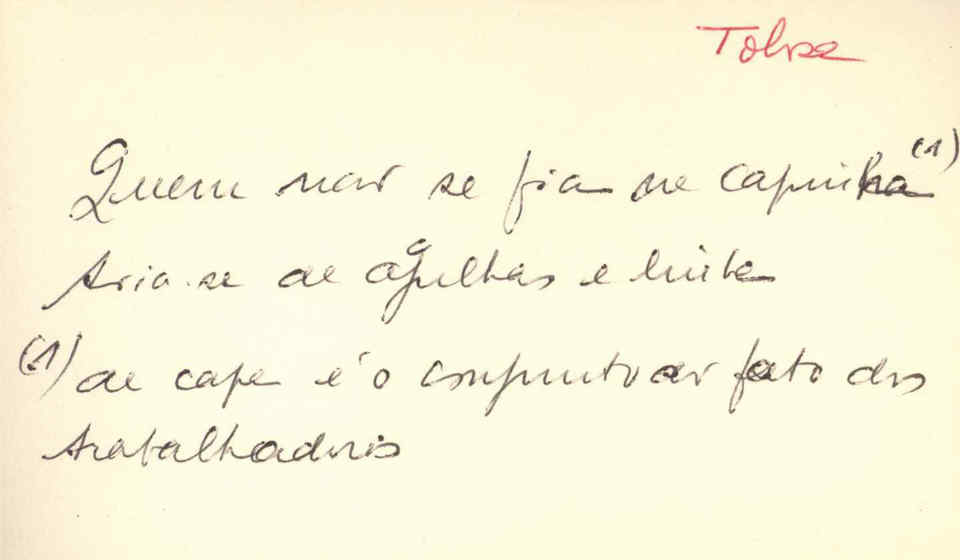 Quem não se fia na capinha (1)
fia-se de agulhas e linha
(1) de capa é o conjunto do fato dos
trabalhadores